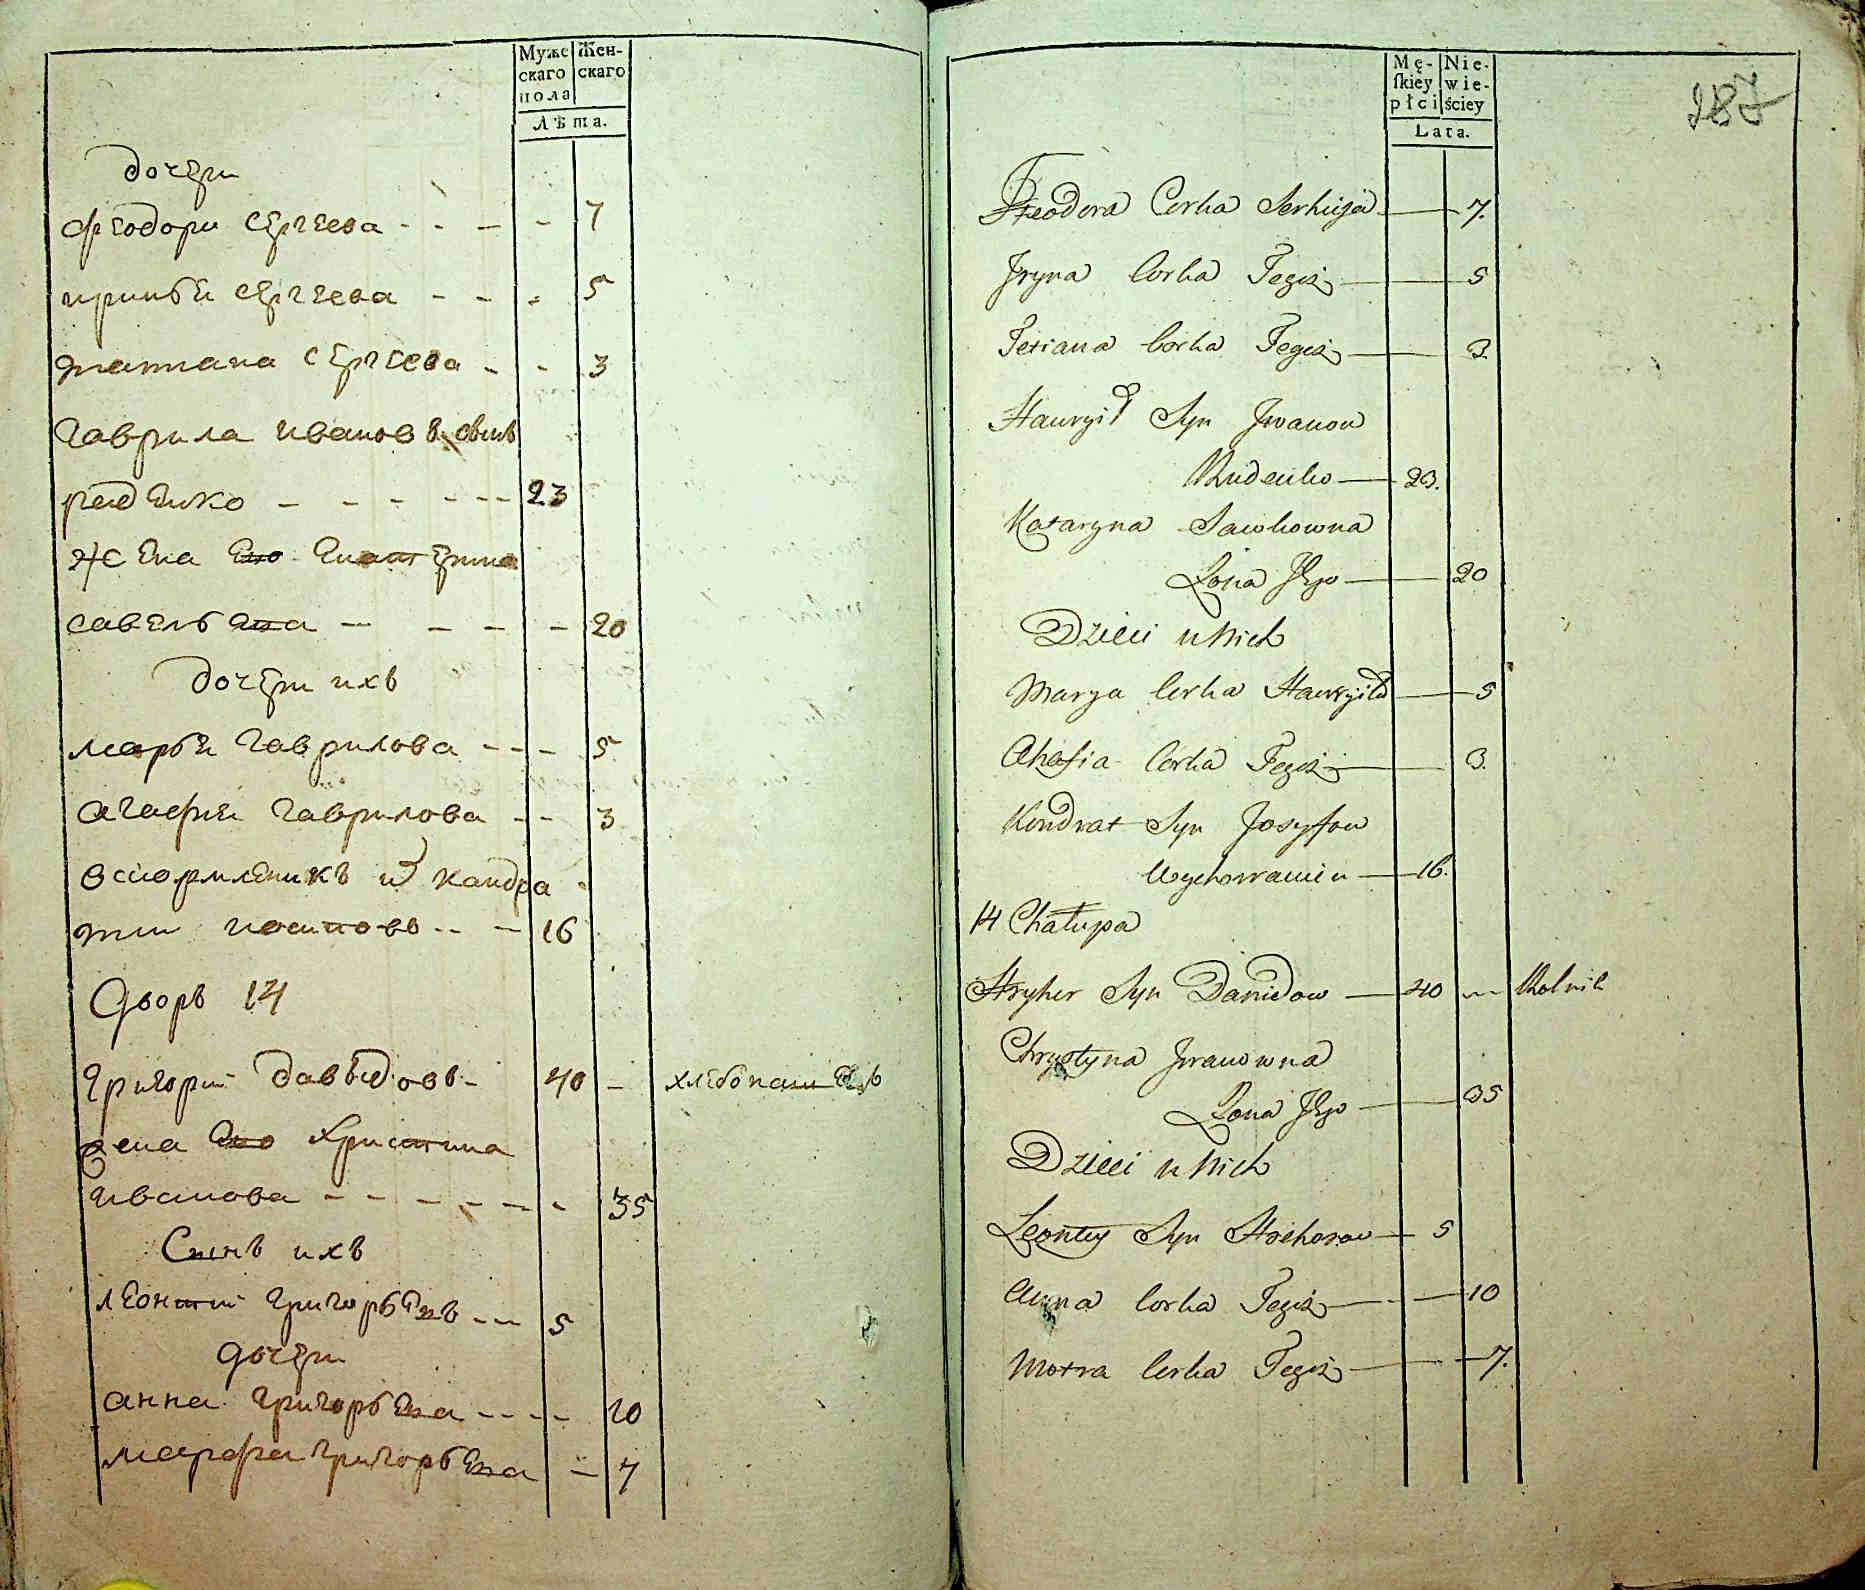 Муже
скаго
пола
Жен-
скаго
Лѣта.
дочери
феодора сергеева - - - - 7
ирина сергеева - - - 5
татиана сергеева - - 3
Гаврила иванов
руденко - - - - - - 23
жена его екатерина
савельева - - - - 20
дочери ихъ
марья гаврилова - - - 5
агафия гаврилова - - 3
вскормленикъ кандра
тий иосиповъ - - - 16
Дворъ 14
григорий давыдовъ - 40 - хлебопашецъ
жена его христина
иванова - - - - - - 35
Сынъ ихъ
леонтий григорьевъ - - - 5
дочери
анна григорьева - - - - 10
марфа григорьева - 7
Mę-
skiey
płci
Nie-
wie-
ściey
Lata.
187
Feodora Corka Serhieja — 7.
Jryna Corka Tegoż — 5
Tetiana Corka Tegoż — 3.
Hawryił Syn Jwanow
Rudenko — 23.
Kataryna Sawkowna
Żona Jego — 20
Dzieci u Nich
Marya Corka Hawryiła — 5
Ahafia Corka Tegoż — 3.
Kondrat Syn Josyfow
Wychowaniec — 16.
14 Chałupa
Hryher Syn Danidow — 40 — Rolnik
Chrystyna Jwanowna
Żona Jego — 35
Dzieci u Nich
Leonty Syn Hrehorow — 5
Anna Corka Tegoż — 10
Motra Corka Tegoż — 7.